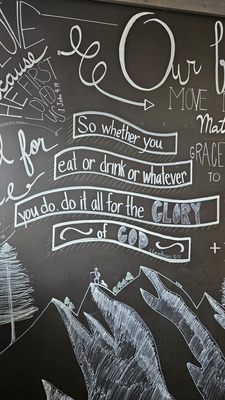 LOVE
because
HE FIRST
LOVED
1 John 4:19
Our
MOVE
Mat
GRACE
TO
for
So whether you
eat or drink or whatever
you do, do it all for the GLORY
of GOD